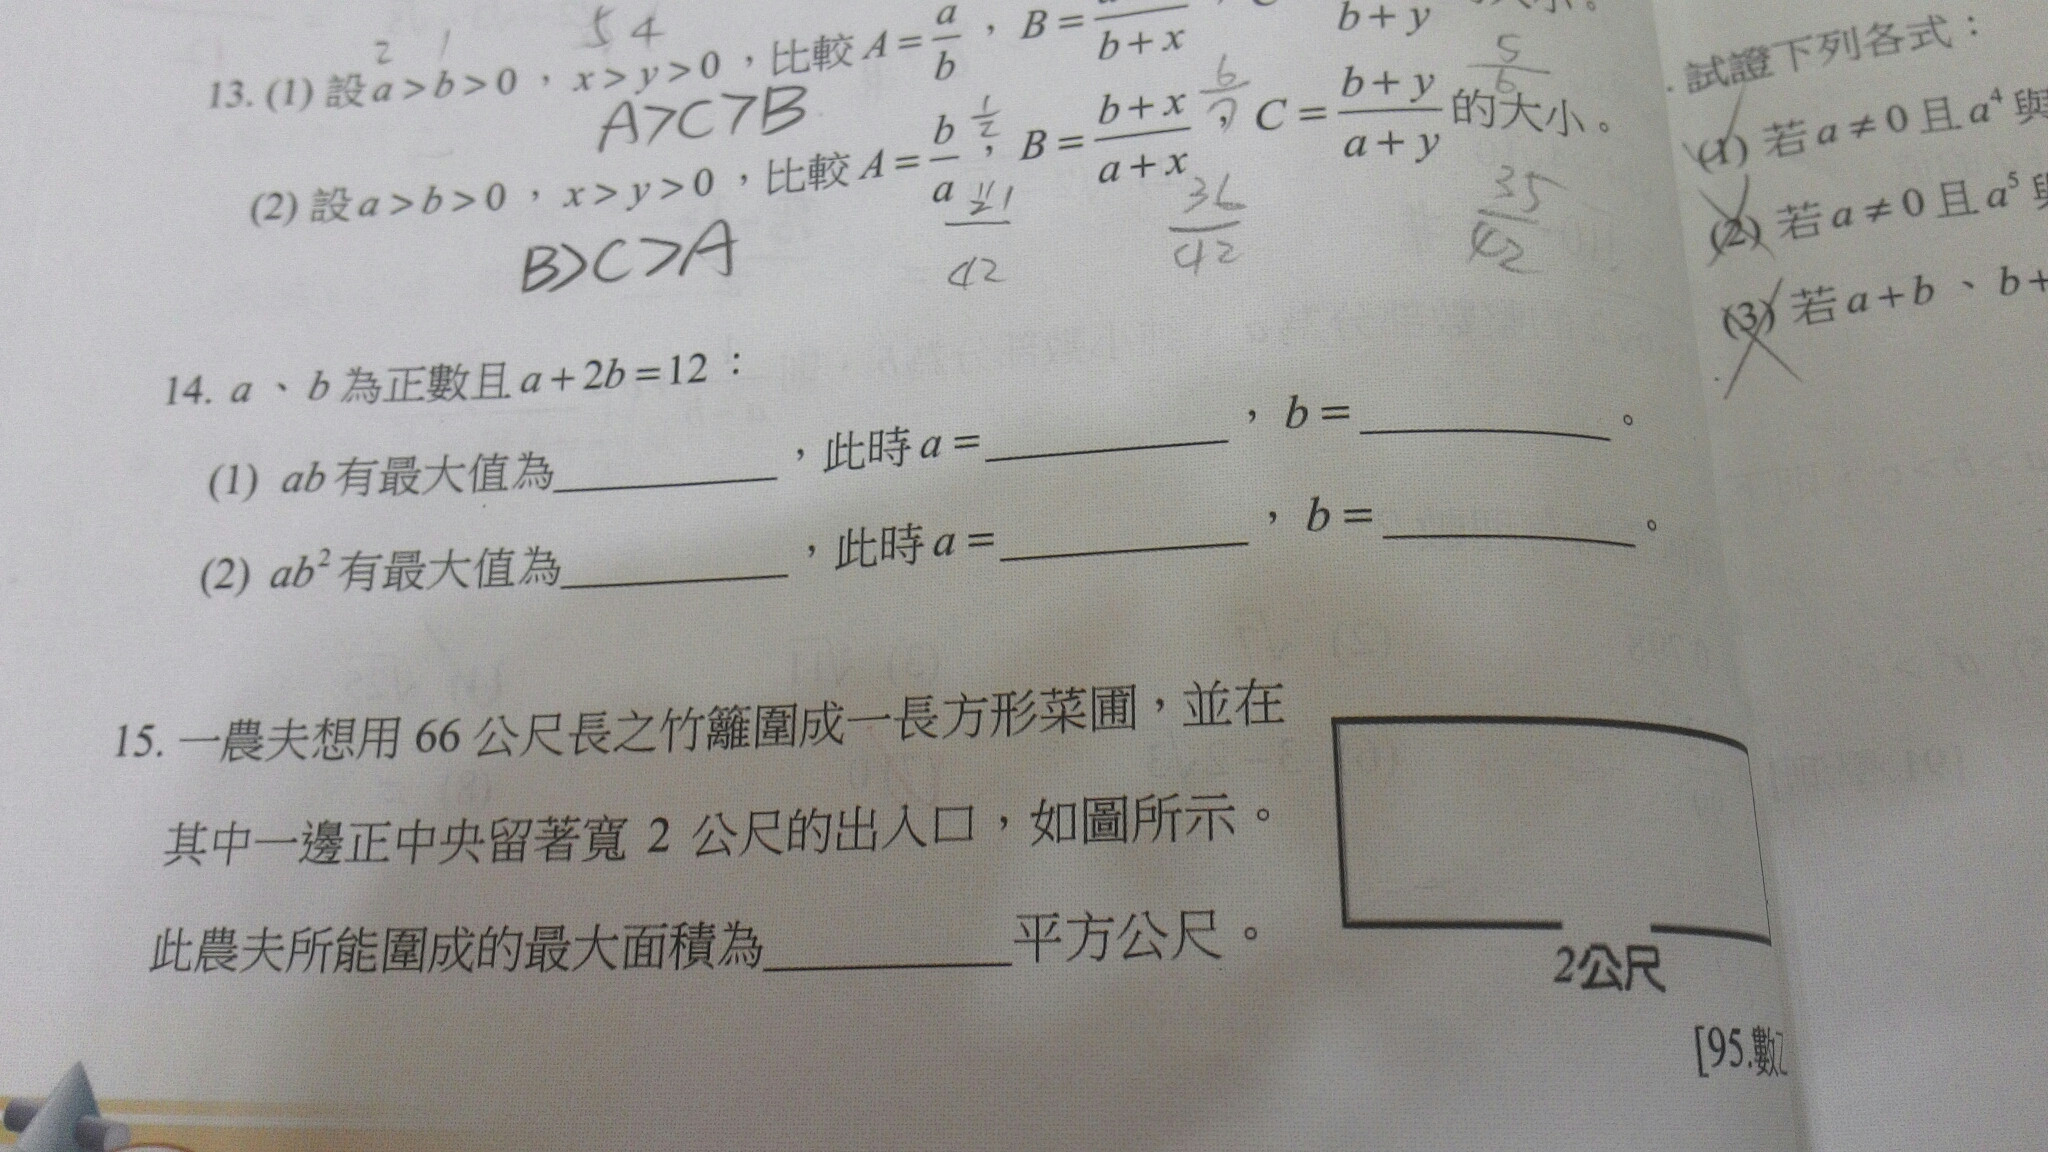 2 1 5 4
13. (1) 設 a > b > 0 , x > y > 0 , 比較 A = a/b , B = /(b+x) , /(b+y) 的大小。
A>C>B
(2) 設 a > b > 0 , x > y > 0 , 比較 A = b/a , B = (b+x)/(a+x) , C = (b+y)/(a+y) 的大小。
1/2 6/7 5/6
B>C>A 21/42 36/42 35/42
14. a 、 b 為正數且 a + 2b = 12 :
(1) ab 有最大值為__________ , 此時 a = __________ , b = __________ 。
(2) ab² 有最大值為__________ , 此時 a = __________ , b = __________ 。
15. 一農夫想用 66 公尺長之竹籬圍成一長方形菜圃,並在
其中一邊正中央留著寬 2 公尺的出入口,如圖所示。
此農夫所能圍成的最大面積為__________平方公尺。
2公尺
[95.數乙
. 試證下列各式:
(1) 若 a ≠ 0 且 a⁴ 與
(2) 若 a ≠ 0 且 a⁵ 與
(3) 若 a + b 、 b +